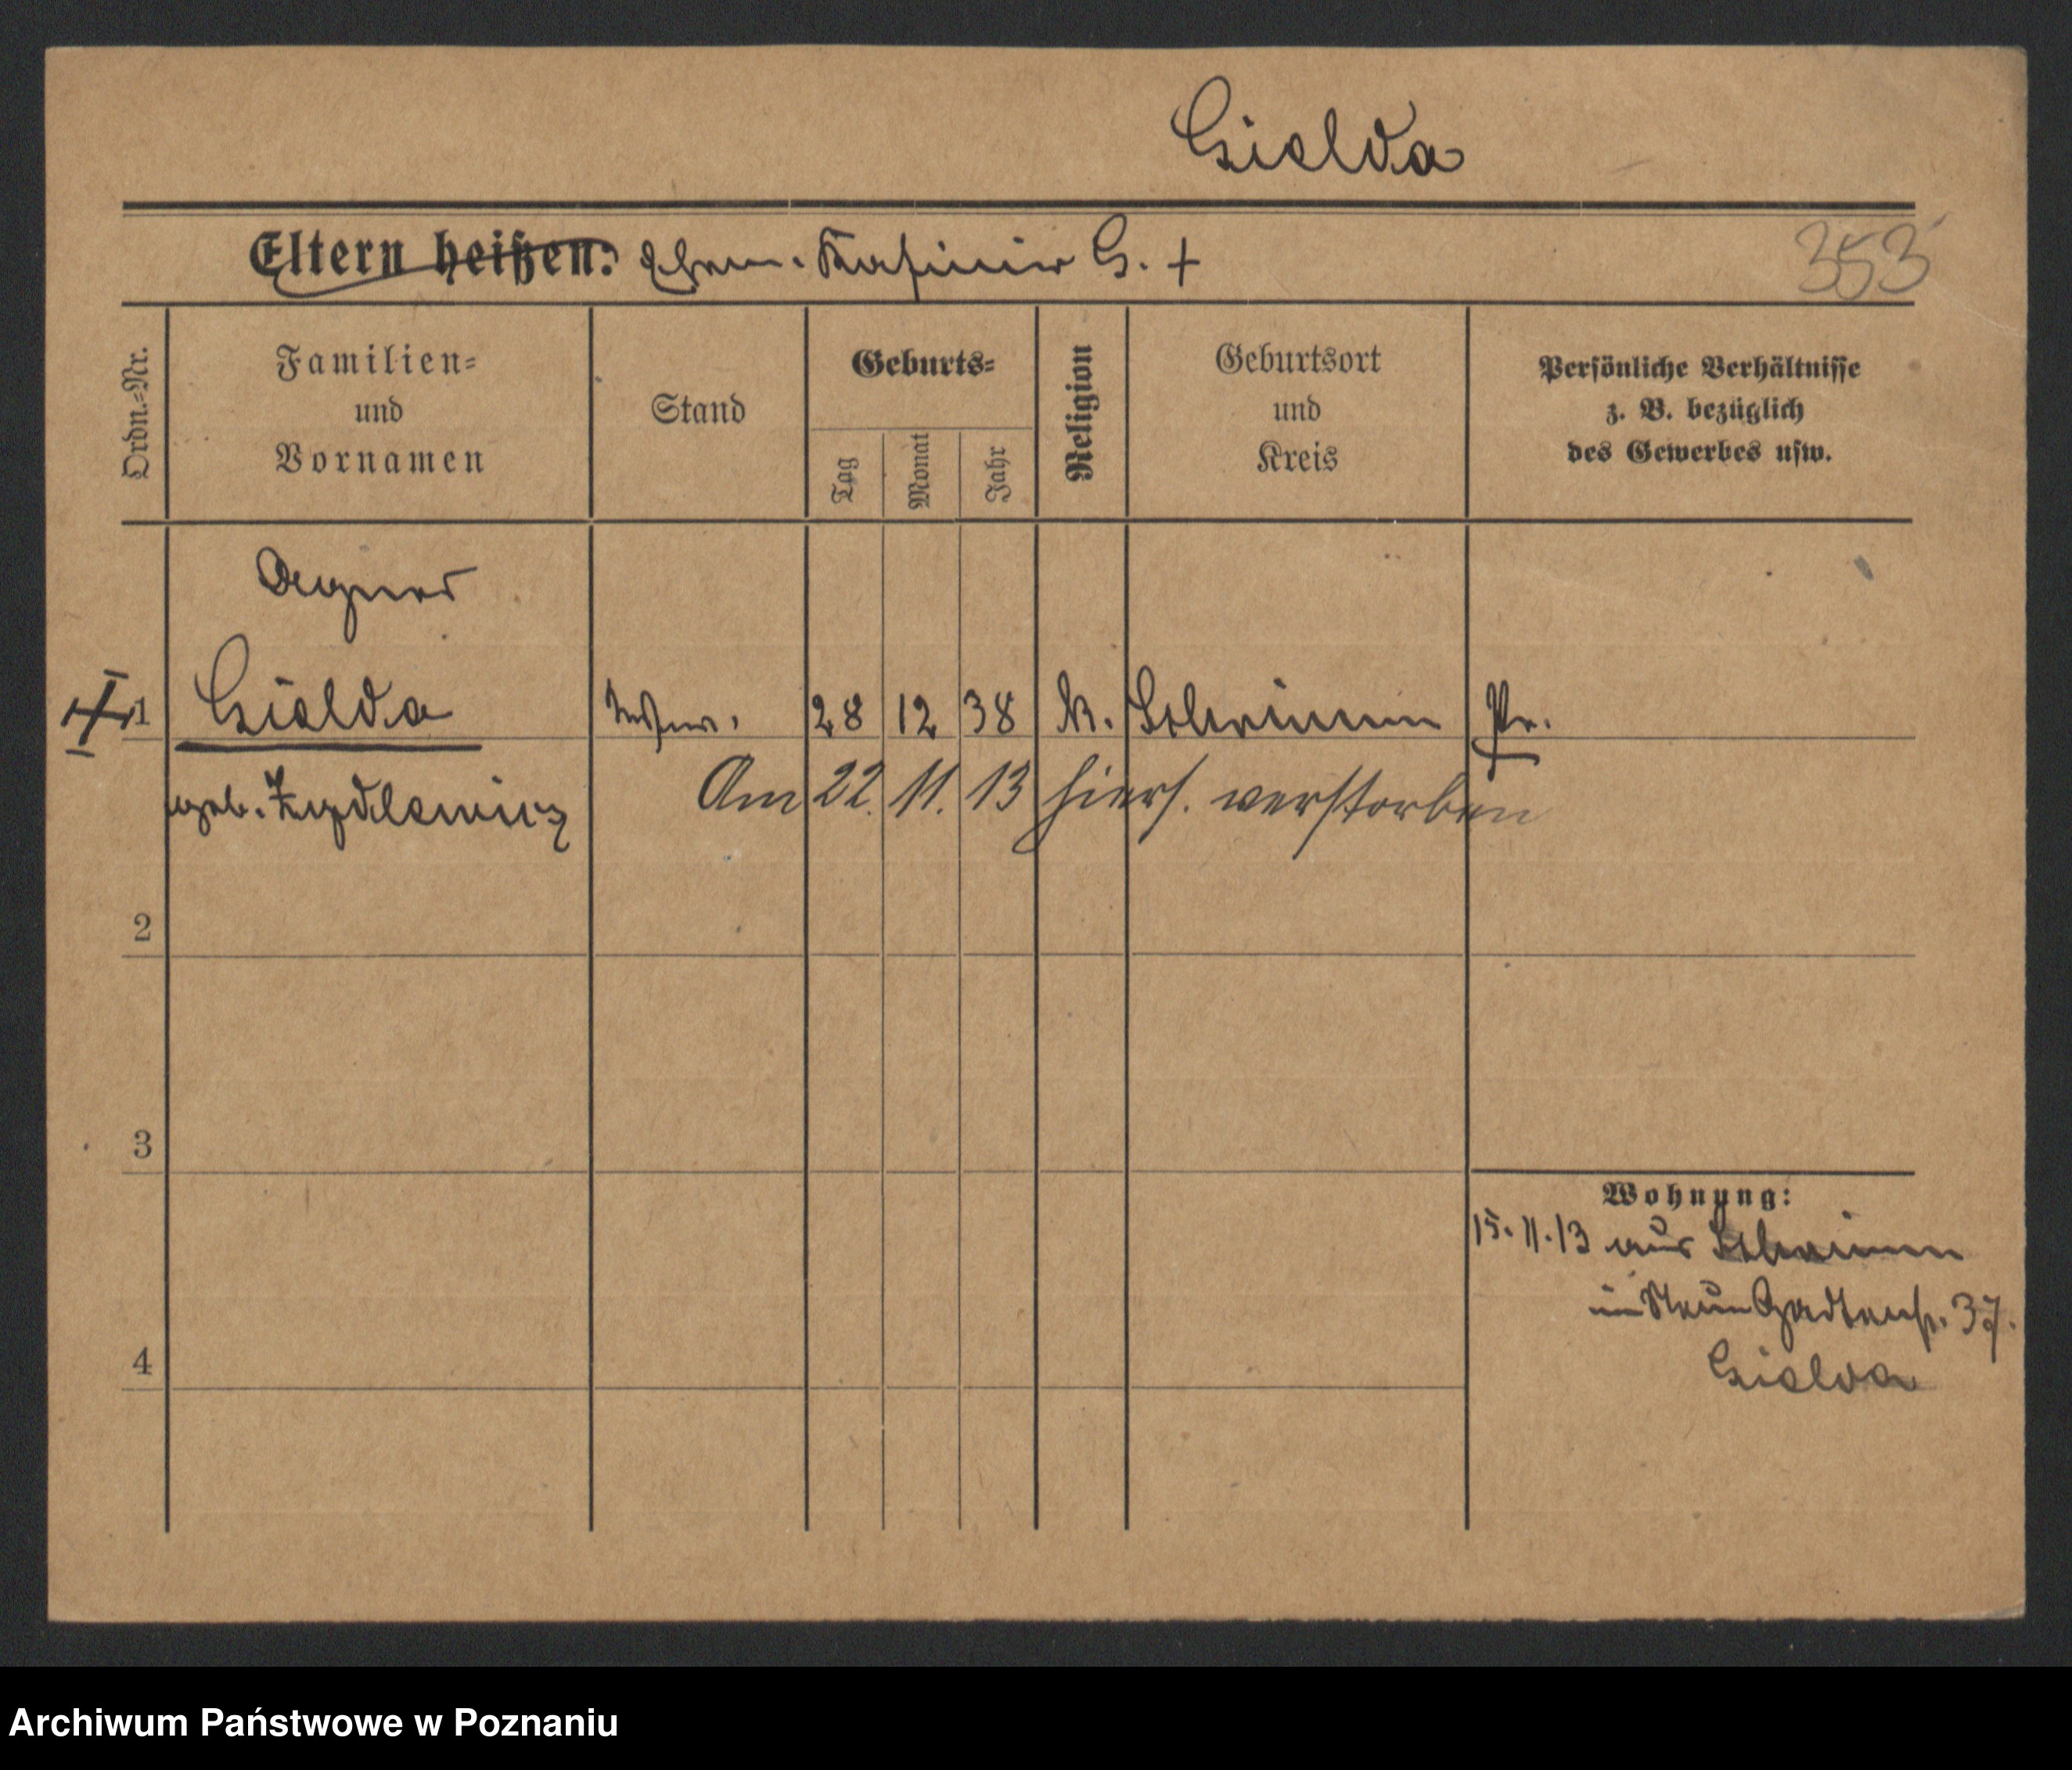 Gielda
Eltern heißen: Ehem. Kasimir G. +
353
Ordn.-Nr.
Familien-
und
Vornamen
Stand
Geburts-
Tag
Monat
Jahr
Religion
Geburtsort
und
Kreis
Persönliche Verhältnisse
z. B. bezüglich
des Gewerbes usw.
Agnes
1 Gielda 28 12 38 k. Schrimm Pr.
geb. Zydlewicz
Am 22. 11. 13 hiers. verstorben
2
3
4
Wohnung:
15. 11. 13 aus Schrimm
37.
Gielda
Archiwum Państwowe w Poznaniu